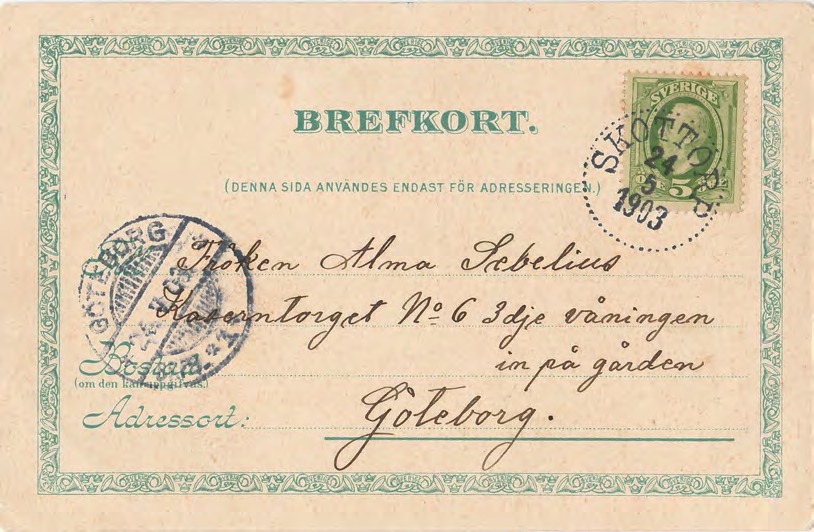 BREFKORT.
SVERIGE
5
SKOTTORP
24
5
1903
(DENNA SIDA ANVÄNDES ENDAST FÖR ADRESSERINGEN.)
GÖTEBORG
Fröken Alma Sebelius
Kaserntorget No 6 3dje våningen
Bostad
in på gården
(om den kan uppgifvas.)
Adressort: Göteborg.